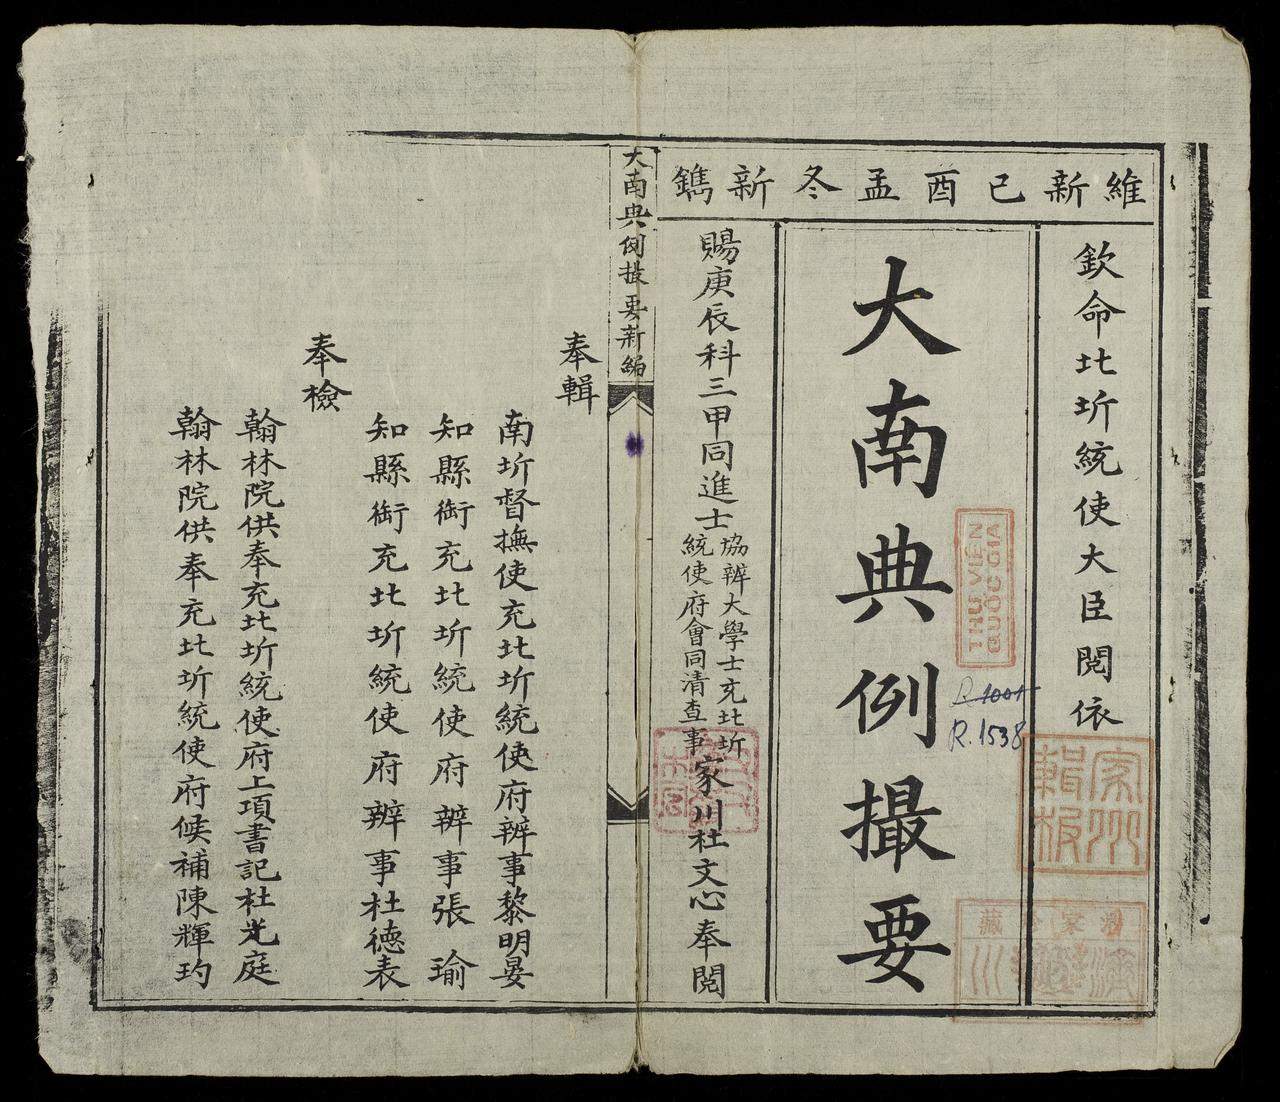 維新己酉孟冬新鐫
欽命北圻統使大臣閱依
大南典例撮要
賜庚辰科三甲同進士
協辦大學士充北圻
統使府會同清查事
家川杜文心奉閱
THƯ VIỆN
QUỐC GIA
R.1001
R.1538
家川
輯板
大南典例撮要新編
奉輯
南圻督撫使充北圻統使府辦事黎明晏
知縣銜充北圻統使府辦事張瑜
知縣銜充北圻統使府辦事杜德表
奉檢
翰林院供奉充北圻統使府上項書記杜光庭
翰林院供奉充北圻統使府候補陳輝玓